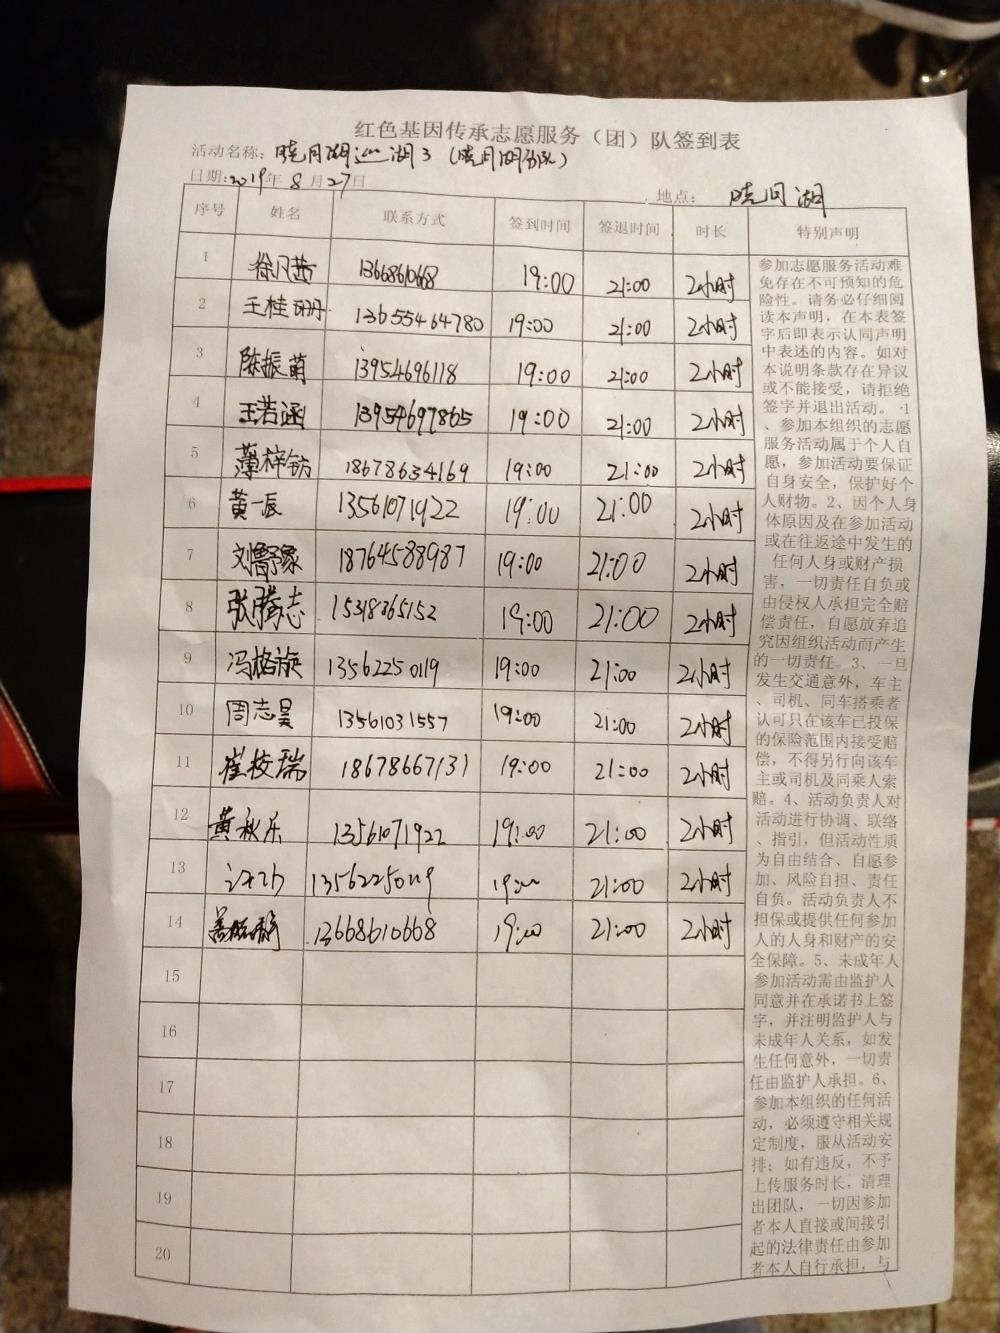 红色基因传承志愿服务（团）队签到表
活动名称：晓月湖巡湖3（晓月湖分队）
日期：2019年8月27日
地点： 晓月湖
序号 姓名 联系方式 签到时间 签退时间 时长 特别声明
1 徐凡茜 13668610668 19:00 21:00 2小时
2 王桂珊 13655464780 19:00 21:00 2小时
3 陈振菌 13954696118 19:00 21:00 2小时
4 王若涵 13954697865 19:00 21:00 2小时
5 薄梓钫 18678634169 19:00 21:00 2小时
6 黄一辰 13561071922 19:00 21:00 2小时
7 刘鲁豫 18764588987 19:00 21:00 2小时
8 张腾志 15318365152 19:00 21:00 2小时
9 冯格旋 13562250119 19:00 21:00 2小时
10 周志昊 13561031557 19:00 21:00 2小时
11 崔校瑞 18678667131 19:00 21:00 2小时
12 黄秋乐 13561071922 19:00 21:00 2小时
13 13562250119 19:00 21:00 2小时
14 13668610668 19:00 21:00 2小时
15
16
17
18
19
20
参加志愿服务活动难
免存在不可预知的危
险性。请务必仔细阅
读本声明，在本表签
字后即表示认同声明
中表述的内容。如对
本说明条款存在异议
或不能接受，请拒绝
签字并退出活动。1
、参加本组织的志愿
服务活动属于个人自
愿，参加活动要保证
自身安全，保护好个
人财物。2、因个人身
体原因及在参加活动
或在往返途中发生的
任何人身或财产损
害，一切责任自负或
由侵权人承担完全赔
偿责任，自愿放弃追
究因组织活动而产生
的一切责任。3、一旦
发生交通意外，车主
、司机、同车搭乘者
认可只在该车已投保
的保险范围内接受赔
偿，不得另行向该车
主或司机及同乘人索
赔。4、活动负责人对
活动进行协调、联络
、指引，但活动性质
为自由结合、自愿参
加、风险自担、责任
自负。活动负责人不
担保或提供任何参加
人的人身和财产的安
全保障。5、未成年人
参加活动需由监护人
同意并在承诺书上签
字，并注明监护人与
未成年人关系，如发
生任何意外，一切责
任由监护人承担。6、
参加本组织的任何活
动，必须遵守相关规
定制度，服从活动安
排；如有违反，不予
上传服务时长，清理
出团队，一切因参加
者本人直接或间接引
起的法律责任由参加
者本人自行承担，与